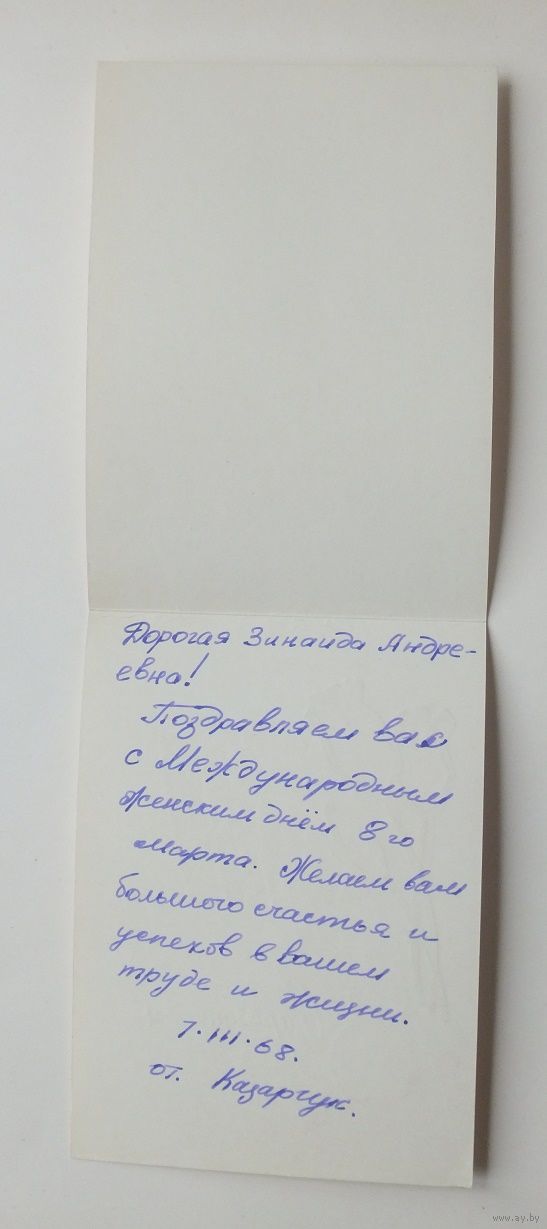 Дорогая Зинаида Андре-
евна!
Поздравляем вас
с Международным
женским днём 8го
марта. Желаем вам
большого счастья и
успехов в вашем
труде и жизни.
7.III.68.
от. Казарчук.
www.ay.by